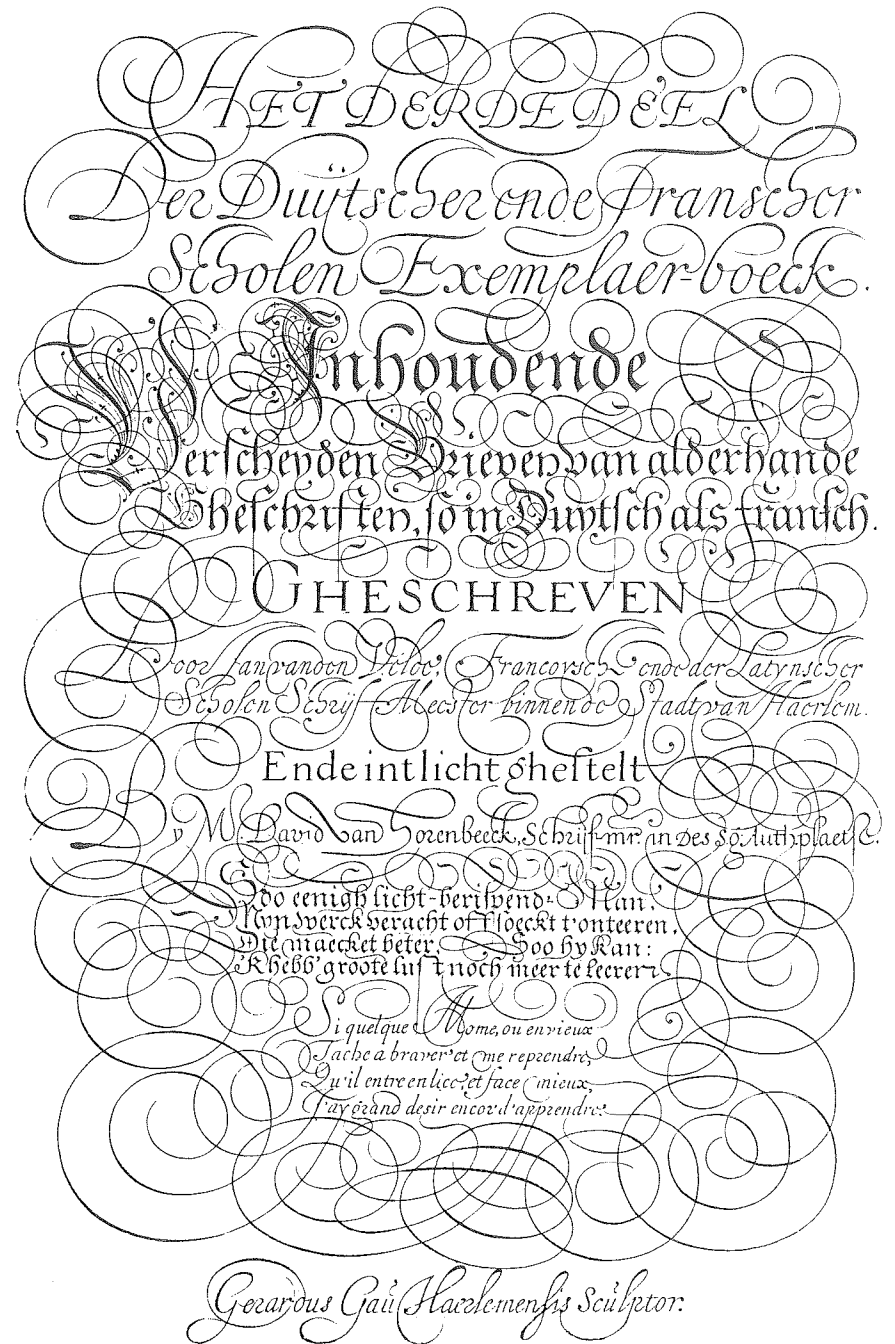 HET DERDE DEEL
Der Duÿtscher ende Franscher
Scholen Exemplaer-boeck.
Inhoudende
Verscheyden Brieven van alderhande
Gheschriften, so in Duytsch als fransch.
GHESCHREVEN
Door Jan vanden Velde, Francoysch ende der Latynscher
Scholen Schrijf-Meester binnen de Stadt van Haerlem.
Ende int licht ghestelt
By M. David van Horenbeeck, Schrijf-mr. in des
Soo eenigh licht-berispend' Man,
Myn werck veracht off soeckt t'onteeren,
Die maecket beter, Soo hy Kan:
'K hebb' groote lust noch meer te leeren.
Si quelque Mome, ou envieux
Tache a braver et me reprendre,
Qu'il entre en lice, et face mieux,
J'ay grand desir encor d'apprendre.
Gerardus Gauù Haerlemensis Sculptor.